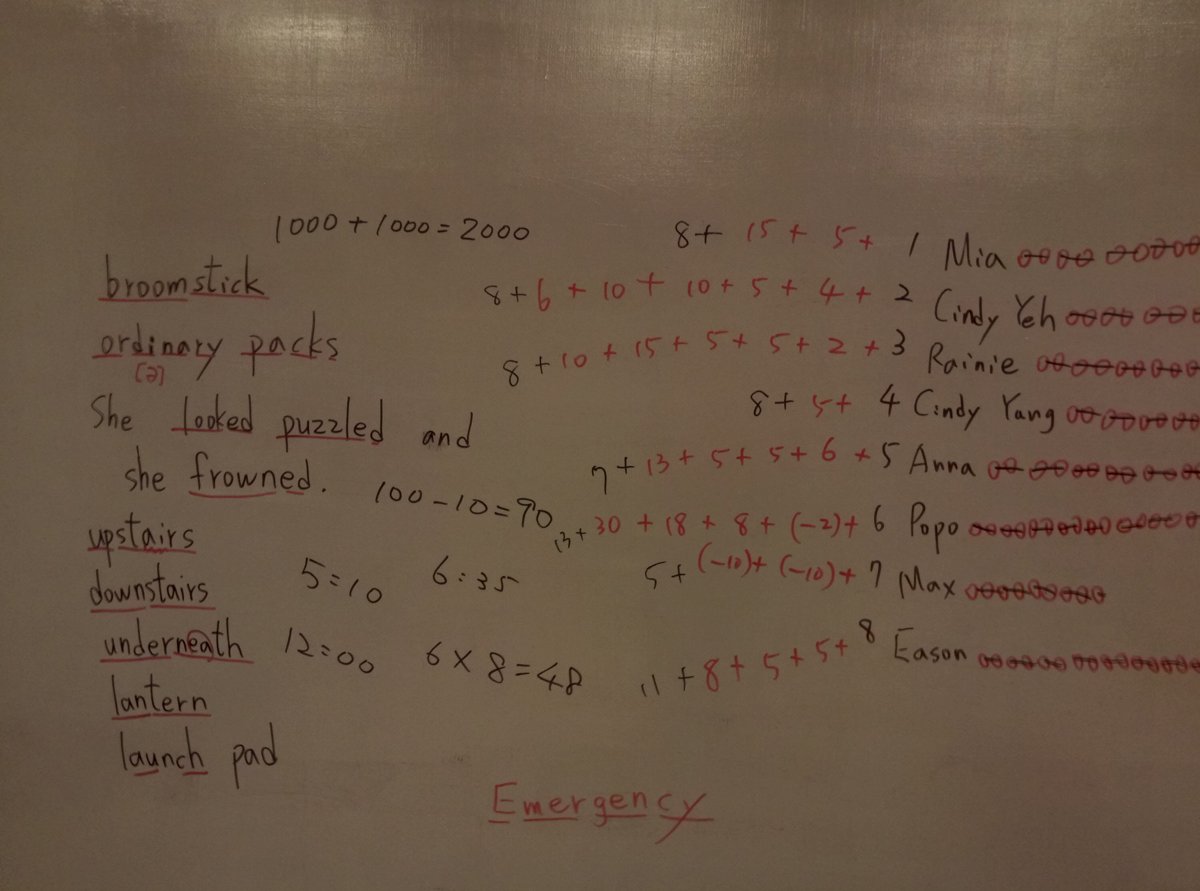 1000 + 1000 = 2000
8 + 15 + 5 + 1 Mia
broomstick
8 + 6 + 10 + 10 + 5 + 4 + 2 Cindy Yeh
ordinary packs
[ə]
8 + 10 + 15 + 5 + 5 + 2 + 3 Rainie
8 + 5 + 4 Cindy Yang
She looked puzzled and
she frowned.
7 + 13 + 5 + 5 + 6 + 5 Anna
100 - 10 = 90
13 + 30 + 18 + 8 + (-2) + 6 Popo
upstairs
5:10 6:35
5 + (-10) + (-10) + 7 Max
downstairs
underneath
12:00 6 × 8 = 48
11 + 8 + 5 + 5 + 8 Eason
lantern
launch pad
Emergency